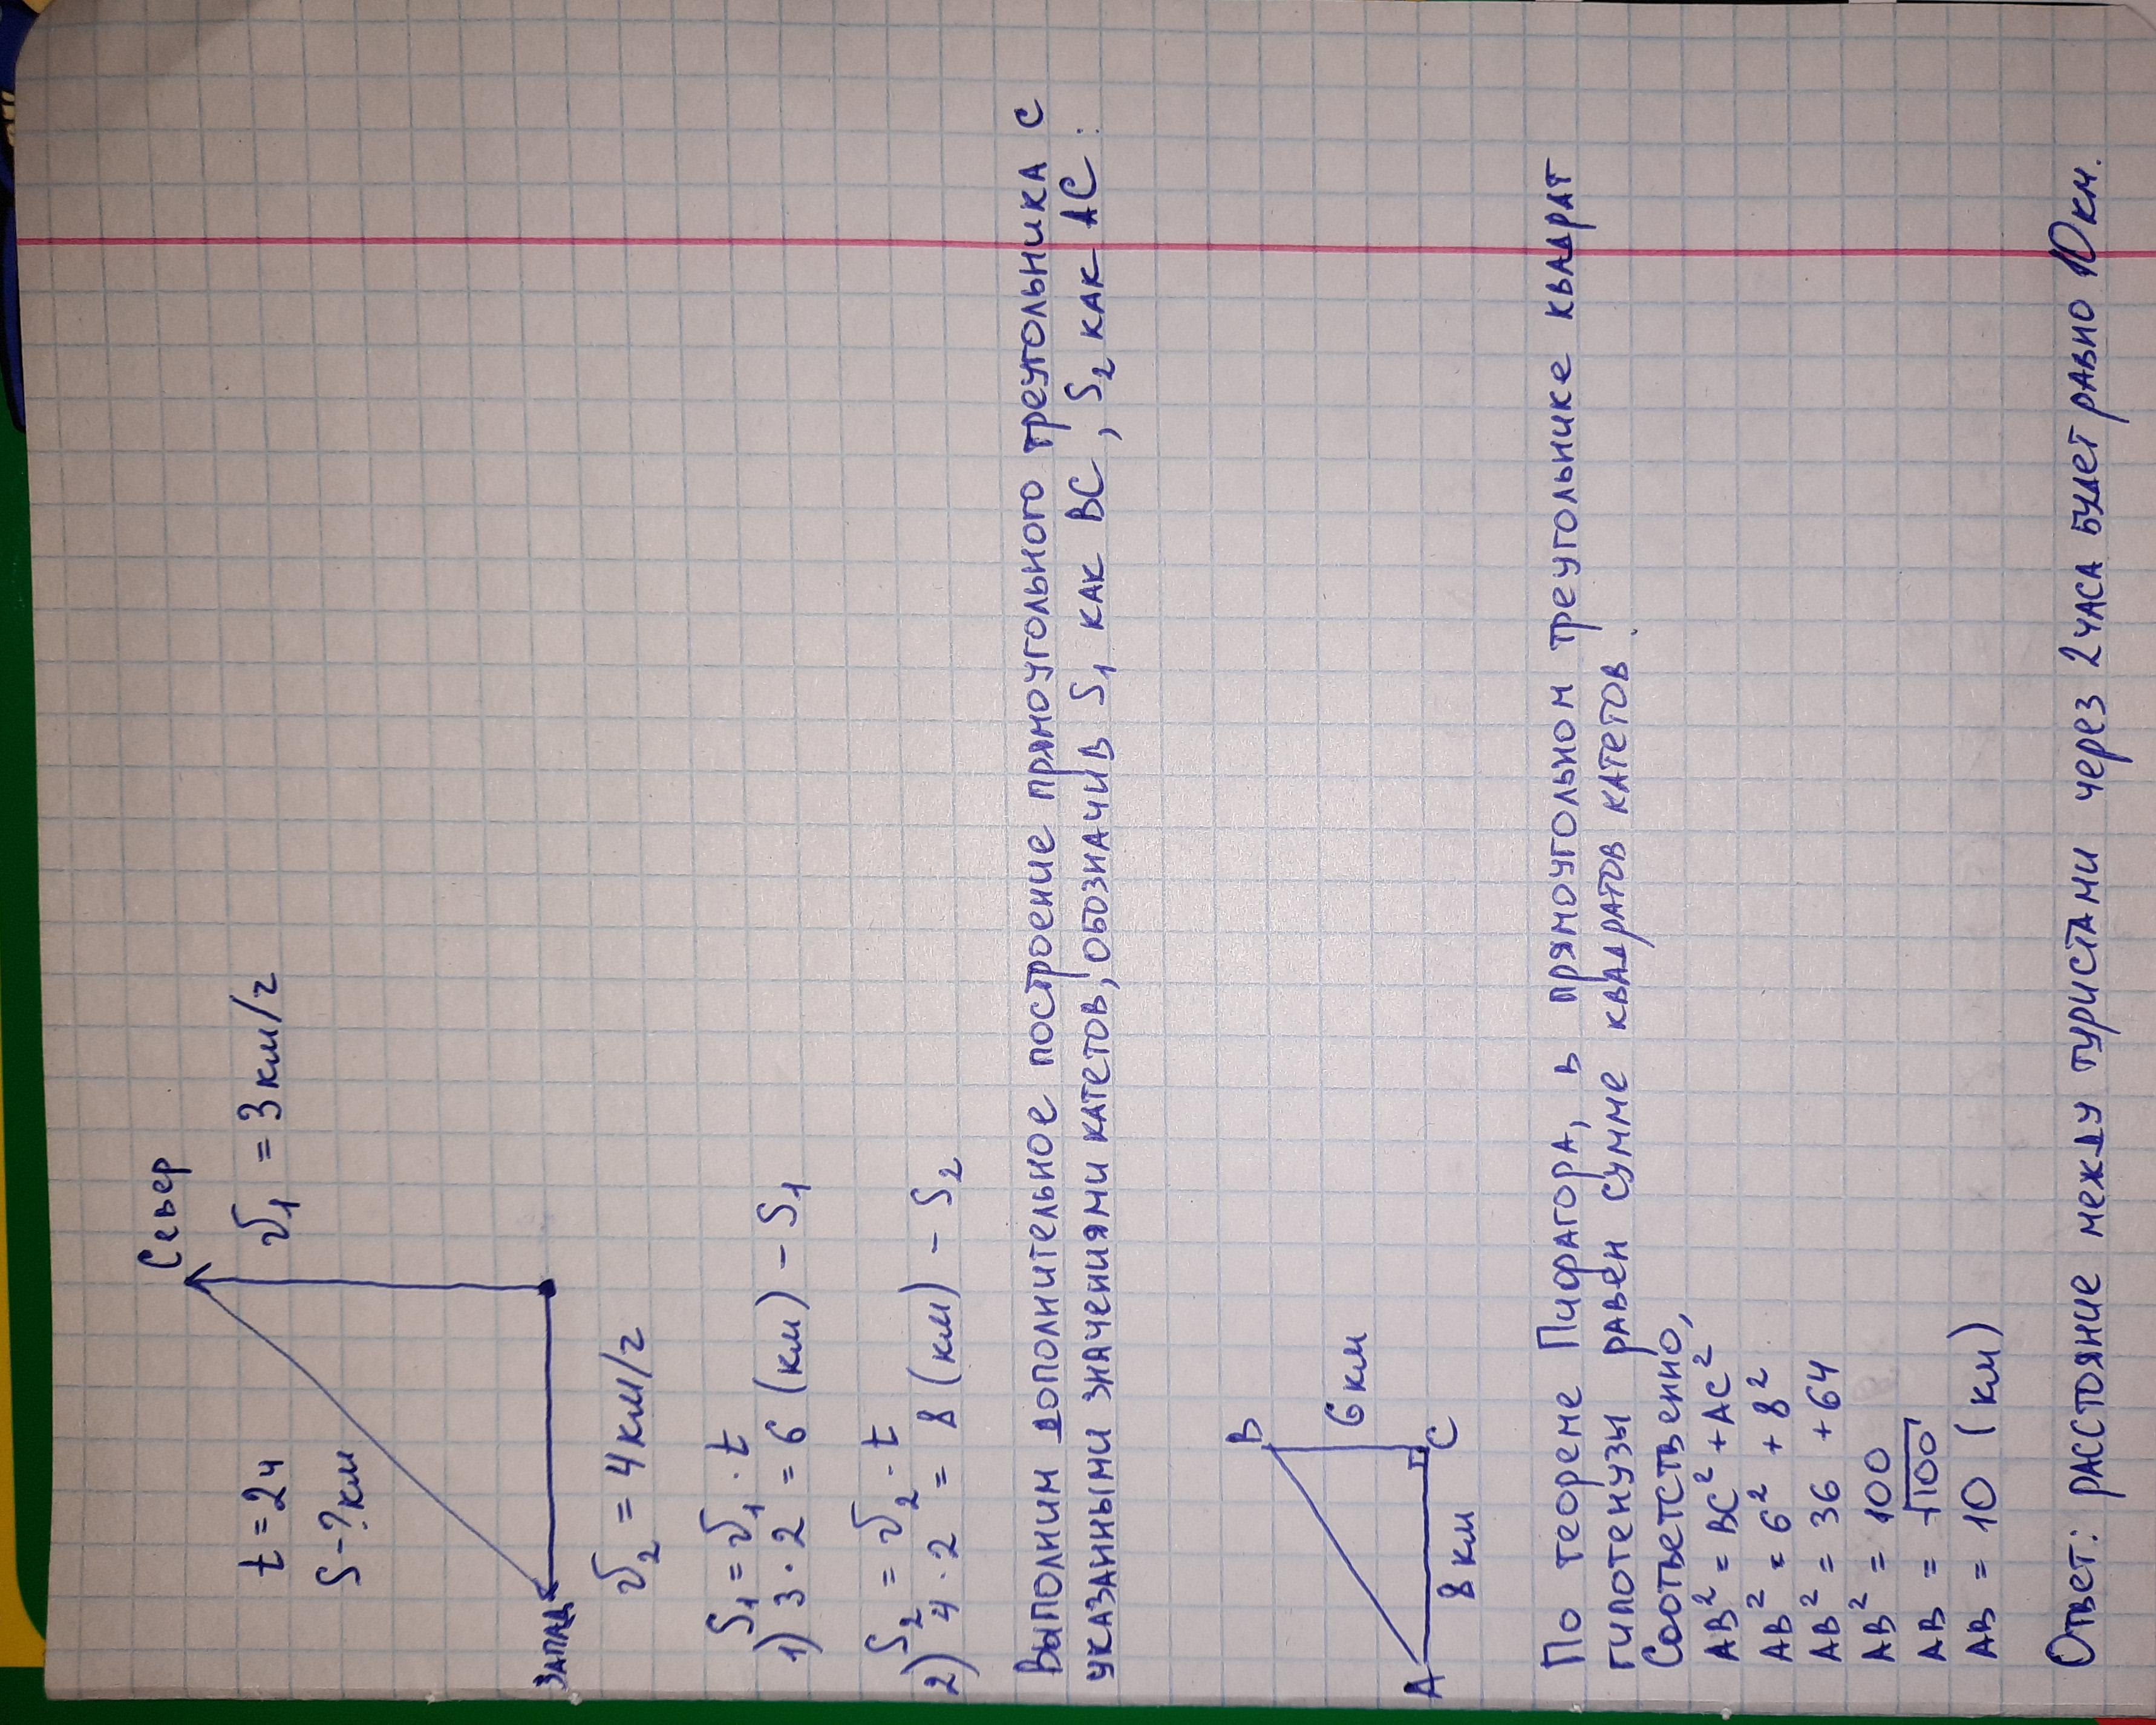 Север
t = 2ч
v₁ = 3 км/г
S - ? км
запад
v₂ = 4 км/г
S₁ = v₁ · t
1) 3 · 2 = 6 (км) – S₁
S₂ = v₂ · t
2) 4 · 2 = 8 (км) – S₂
Выполним дополнительное построение прямоугольного треугольника с
указанными значениями катетов, обозначив S₁ как BC, S₂ как AC:
B
6 км
A
C
8 км
По теореме Пифагора, в прямоугольном треугольнике квадрат
гипотенузы равен сумме квадратов катетов.
Соответственно,
AB² = BC² + AC²
AB² = 6² + 8²
AB² = 36 + 64
AB² = 100
AB = √100
AB = 10 (км)
Ответ: расстояние между туристами через 2 часа будет равно 10 км.